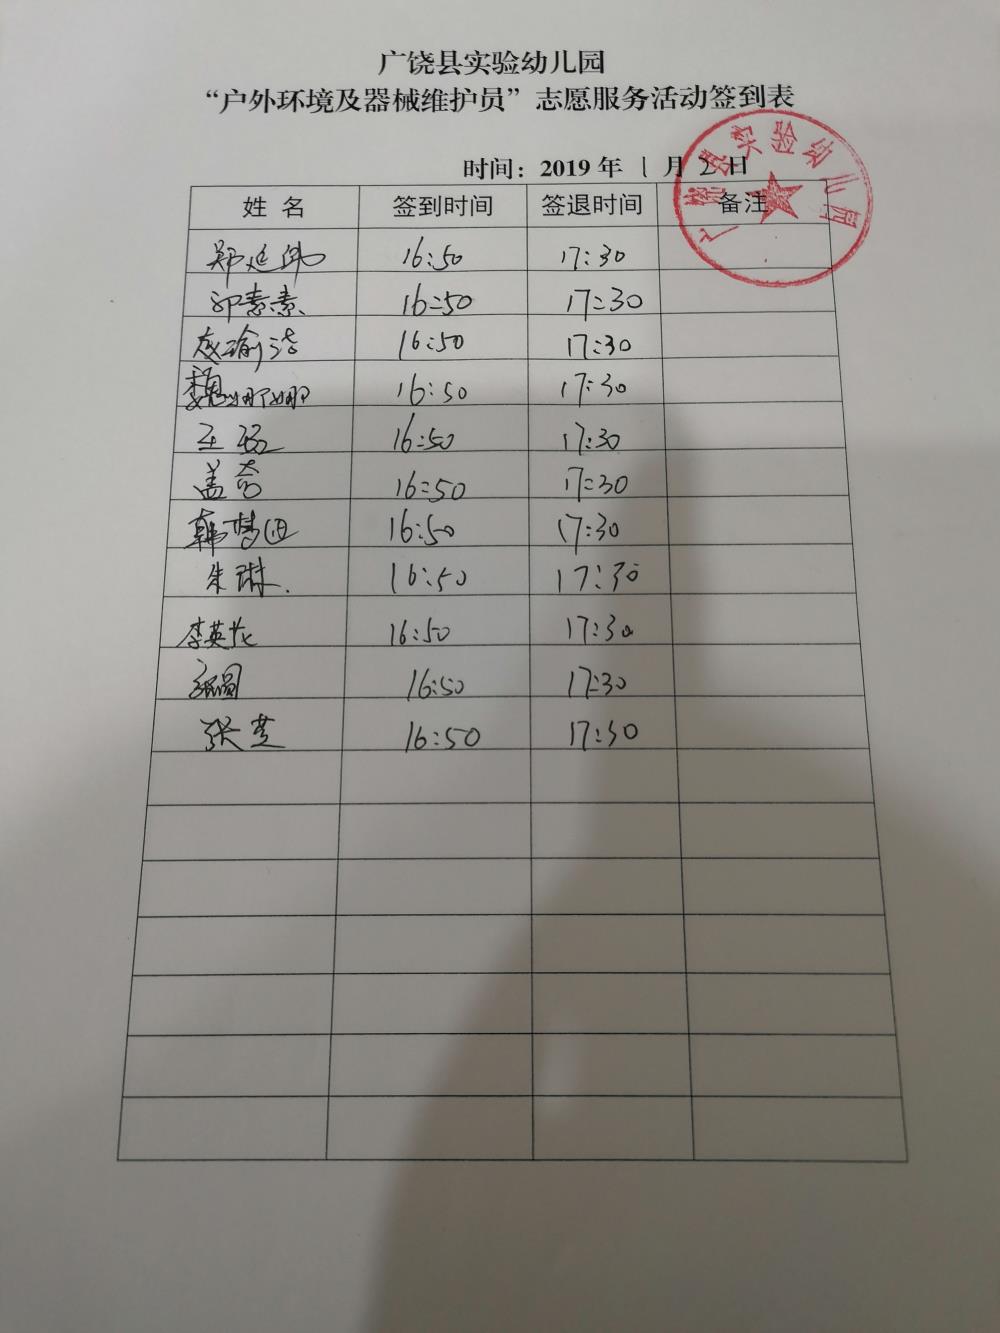 广饶县实验幼儿园
“户外环境及器械维护员”志愿服务活动签到表
时间：2019 年 1 月 2 日
广饶县实验幼儿园
姓 名 签到时间 签退时间 备注
郑延伟 16:50 17:30
素素 16:50 17:30
16:50 17:30
魏娜娜 16:50 17:30
王 16:50 17:30
盖 16:50 17:30
韩梦 16:50 17:30
朱琳. 16:50 17:30
李英 16:50 17:30
16:50 17:30
张芝 16:50 17:30